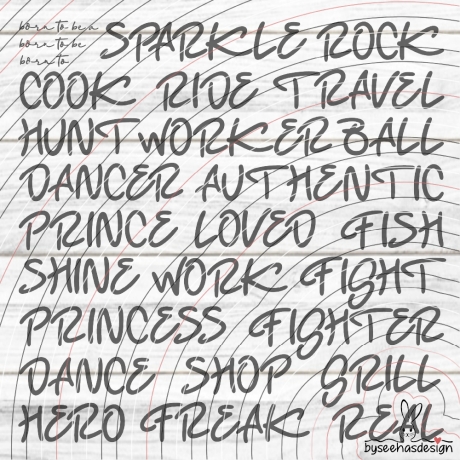 born to be a
born to be
born to
SPARKLE ROCK
COOK RIDE TRAVEL
HUNT WORKER BALL
DANCER AUTHENTIC
PRINCE LOVED FISH
SHINE WORK FIGHT
PRINCESS FIGHTER
DANCE SHOP GRILL
HERO FREAK REAL
byseehasdesign